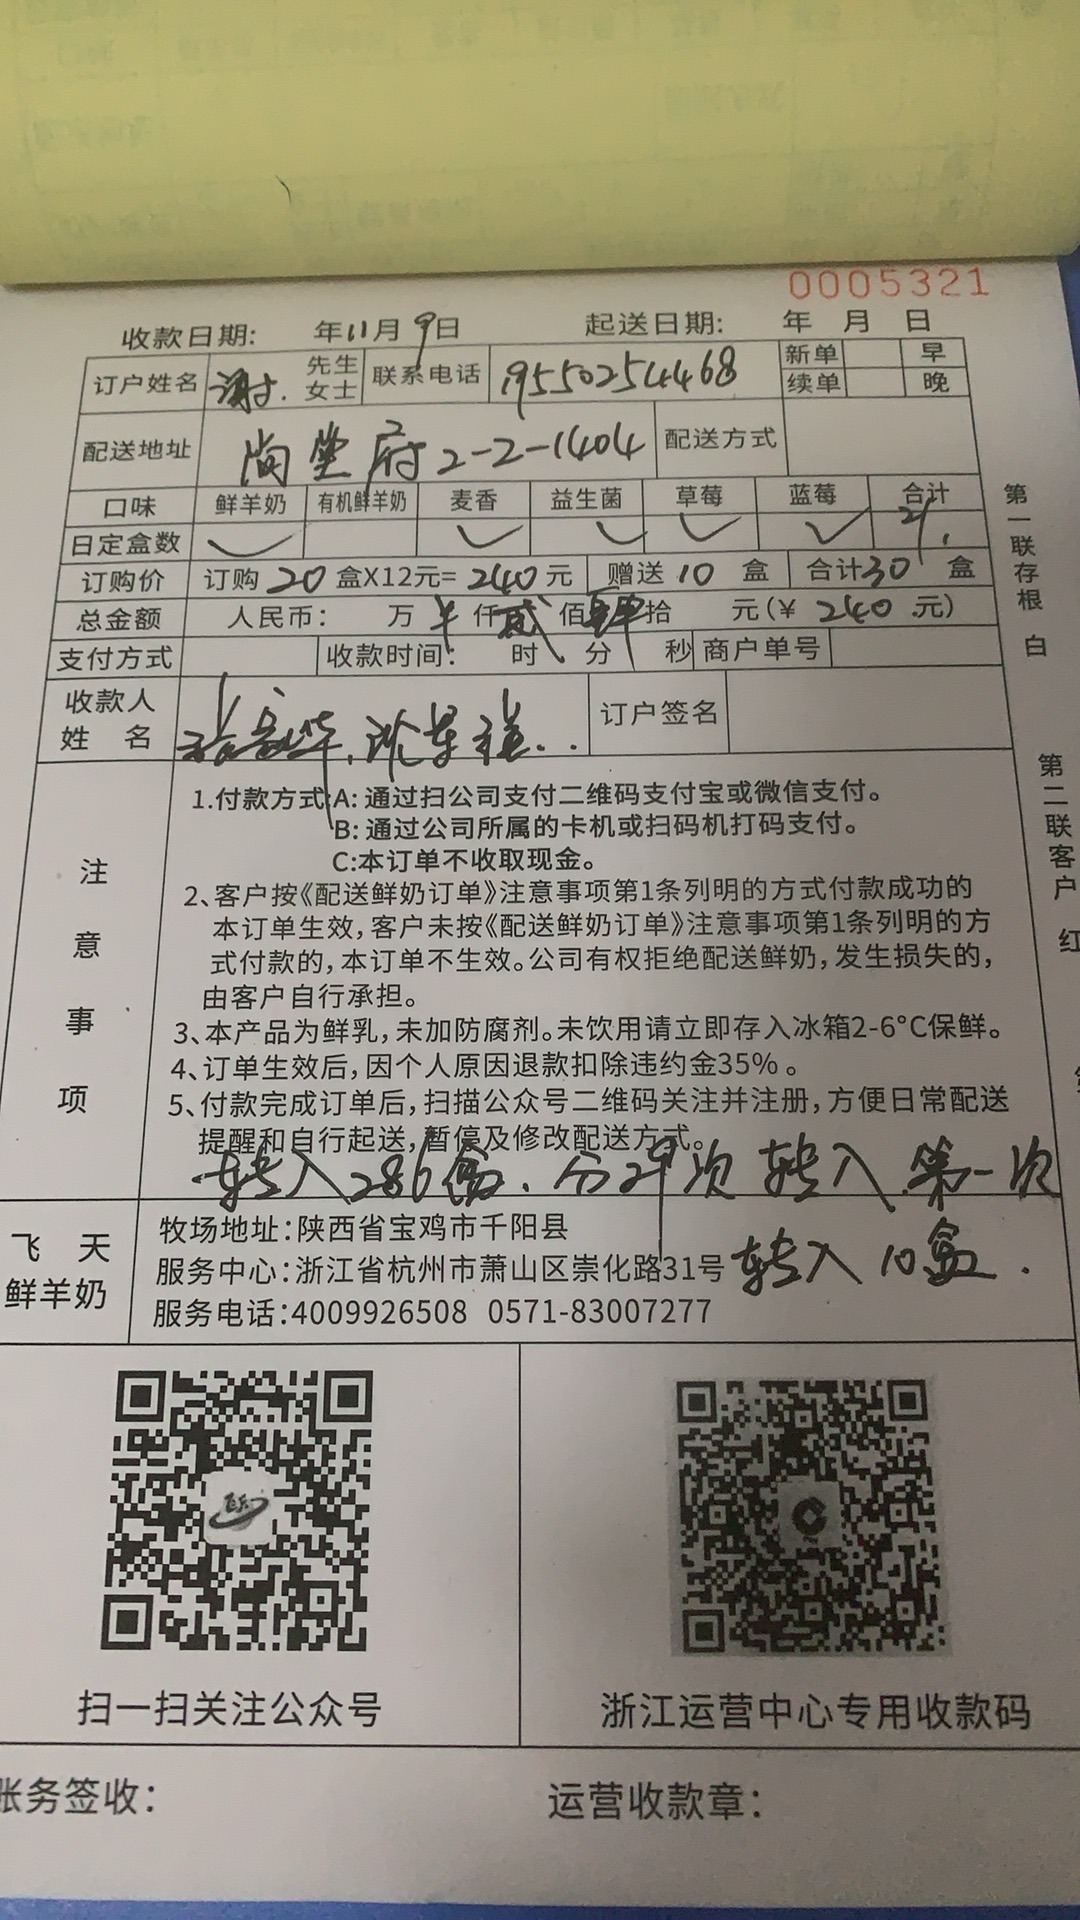 0005321
收款日期: 年11月9日 起送日期: 年 月 日
订户姓名 谢. 先生 女士 联系电话 19550254468 新单 早
续单 晚
配送地址 尚堂府2-2-1404 配送方式
口味 鲜羊奶 有机鲜羊奶 麦香 益生菌 草莓 蓝莓 合计
日定盒数 ✓ ✓ ✓ ✓ ✓ 21.
订购价 订购 20 盒X12元= 240 元 赠送 10 盒 合计30 盒
总金额 人民币: 万 仟 贰 佰 肆 拾 元(¥ 240 元)
支付方式 收款时间: 时 分 秒 商户单号
收款人
姓 名 订户签名
注意事项
1.付款方式:A: 通过扫公司支付二维码支付宝或微信支付。
B: 通过公司所属的卡机或扫码机打码支付。
C:本订单不收取现金。
2、客户按《配送鲜奶订单》注意事项第1条列明的方式付款成功的
本订单生效,客户未按《配送鲜奶订单》注意事项第1条列明的方
式付款的,本订单不生效。公司有权拒绝配送鲜奶,发生损失的,
由客户自行承担。
3、本产品为鲜乳,未加防腐剂。未饮用请立即存入冰箱2-6°C保鲜。
4、订单生效后,因个人原因退款扣除违约金35%。
5、付款完成订单后,扫描公众号二维码关注并注册,方便日常配送
提醒和自行起送,暂停及修改配送方式。
转入286盒.分29次转入.第一次
转入10盒.
飞天
鲜羊奶
牧场地址:陕西省宝鸡市千阳县
服务中心:浙江省杭州市萧山区崇化路31号
服务电话:4009926508 0571-83007277
第一联存根 白
第二联客户 红
扫一扫关注公众号
浙江运营中心专用收款码
账务签收:
运营收款章: